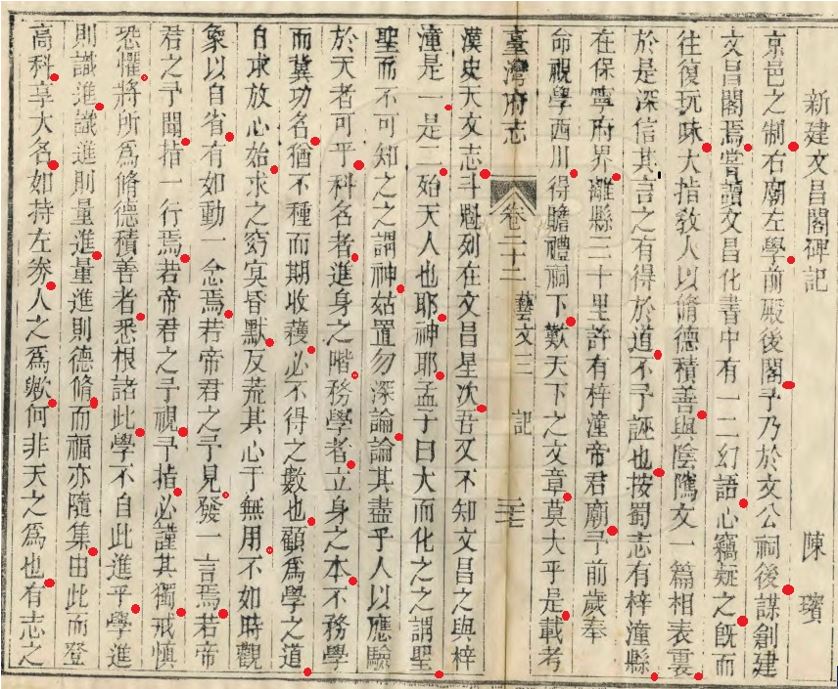 新建文昌閣碑記 陳璸
京邑之制右廟左學前殿後閣予乃於文公祠後謀創建
文昌閣焉嘗讀文昌化書中有一二幻語心竊疑之旣而
往復玩味大指敎人以脩德積善與陰隲文一篇相表裏
於是深信其言之有得於道不予誣也按蜀志有梓潼縣
在保寧府界離縣三十里許有梓潼帝君廟予前歲奉
命視學西川得瞻禮祠下歎天下之文章莫大乎是載考
臺灣府志 卷二十二 藝文三 記 三七
漢史天文志斗魁列在文昌星次吾又不知文昌之與梓
潼是一是二殆天人也耶神耶孟子曰大而化之之謂聖
聖而不可知之之謂神姑置勿深論論其盡乎人以應驗
於天者可乎科名者進身之階務學者立身之本不務學
而冀功名猶不種而期收穫必不得之數也顧爲學之道
自求放心始求之窮冥昏默反荒其心于無用不如時觀
象以自省有如動一念焉若帝君之予見發一言焉若帝
君之予聞措一行焉若帝君之予視予指必謹其獨戒愼
恐懼將所爲脩德積善者悉根諸此學不自此進乎學進
則識進識進則量進量進則德脩而福亦隨集由此而登
高科享大名如持左券人之爲歟何非天之爲也有志之